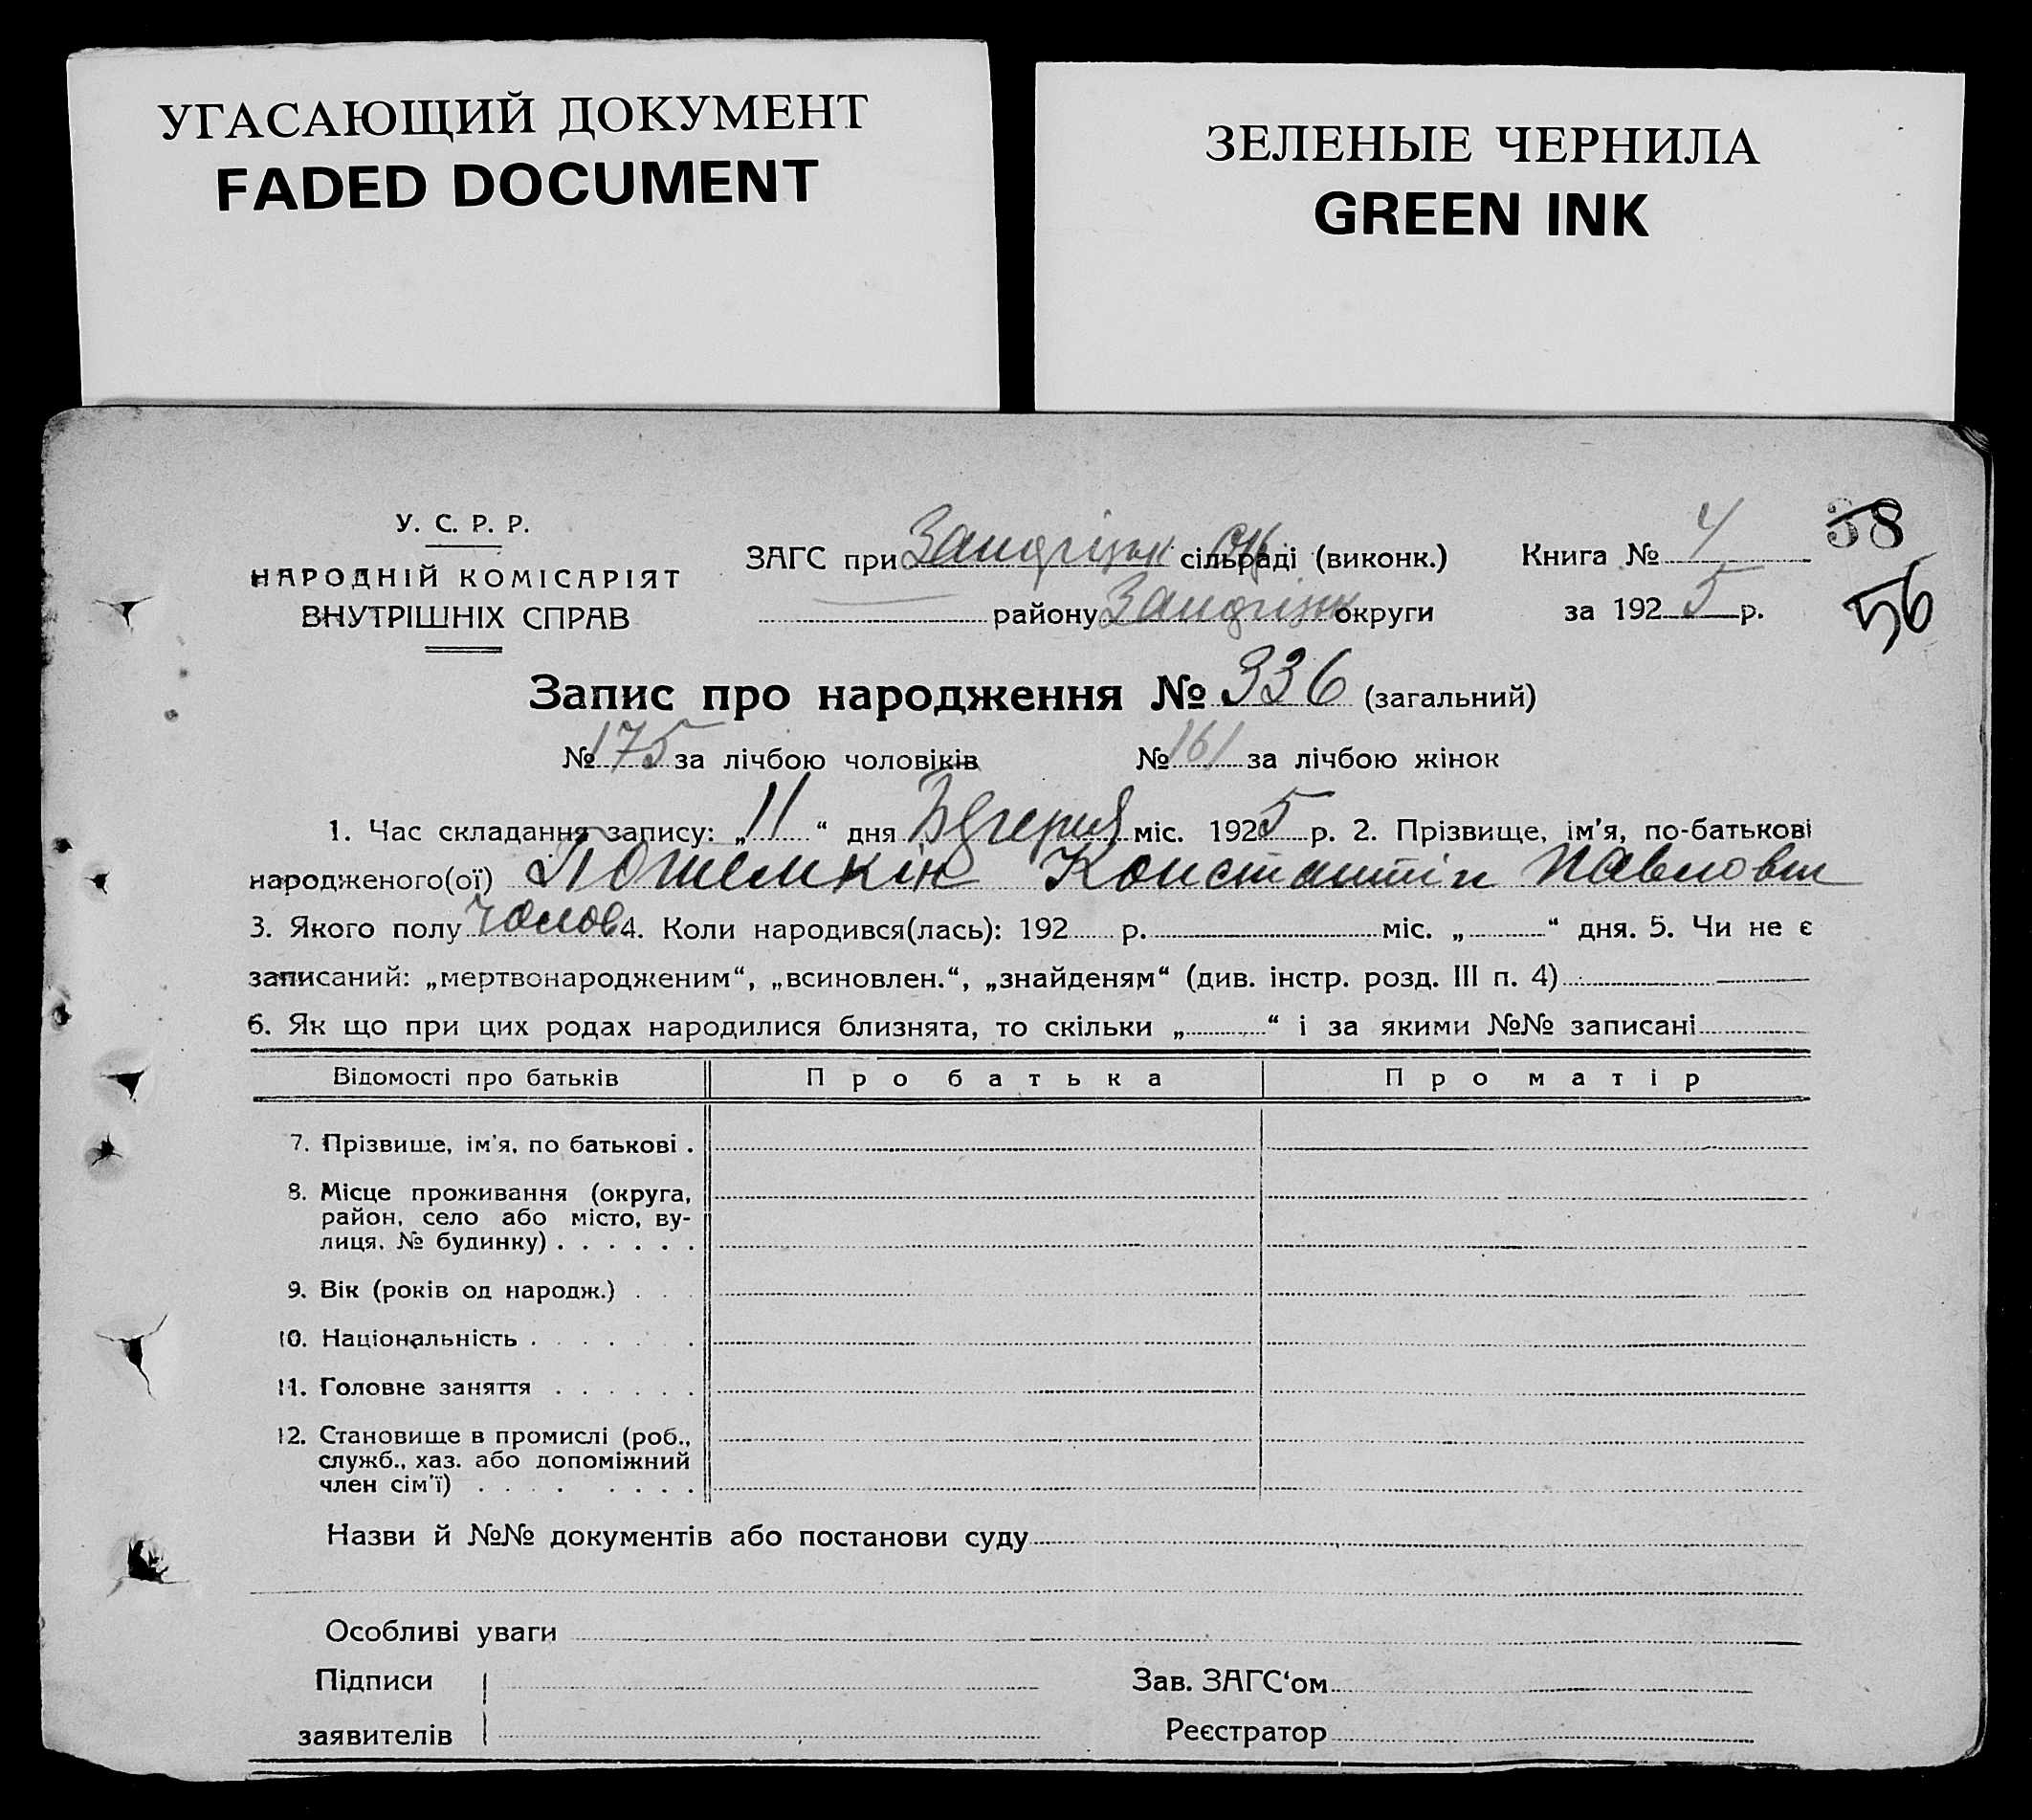 УГАСАЮЩИЙ ДОКУМЕНТ
FADED DOCUMENT
ЗЕЛЕНЫЕ ЧЕРНИЛА
GREEN INK
У. С. Р. Р.
НАРОДНІЙ КОМІСАРІЯТ
ВНУТРІШНІХ СПРАВ
ЗАГС при сільраді (виконк.)
району округи
Книга № 4
за 1925 р.
38
56
Запис про народження № 336 (загальний)
№ 175 за лічбою чоловіків № 161 за лічбою жінок
1. Час складання запису: „ 11 “ дня міс. 1925 р. 2. Прізвище, ім'я, по-батькові
народженого(ої) Потемкін Константін Павлович
3. Якого полу чолов 4. Коли народився(лась): 192 р. міс. „ “ дня. 5. Чи не є
записаний: „мертвонародженим“, „всиновлен.“, „знайденям“ (див. інстр. розд. III п. 4)
6. Як що при цих родах народилися близнята, то скільки „ “ і за якими №№ записані
Відомості про батьків Про батька Про матір
7. Прізвище, ім'я, по батькові .
8. Місце проживання (округа,
район, село або місто, ву-
лиця, № будинку) . . . . . .
9. Вік (років од народж.) . . .
10. Національність . . . . . .
11. Головне заняття . . . . . .
12. Становище в промислі (роб.,
служб., хаз. або допоміжний
член сім'ї) . . . . . . . .
Назви й №№ документів або постанови суду
Особливі уваги
Підписи
заявителів
Зав. ЗАГС‘ом
Реєстратор